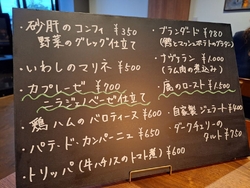 ・砂肝のコンフィ ¥350
野菜のグレッグ仕立て
・いわしのマリネ ¥500
・カプレーゼ ¥700
〜ラジョンベーゼ仕立て
・鶏ハムのバロティーヌ ¥600
・パテ・ド・カンパーニュ ¥650
・トリッパ(牛ハチノスのトマト煮) ¥600
・ブランダード ¥780
(鱈とマッシュポテトのグラタン)
・ナヴァラン ¥1,000
(ラム肉の煮込み)
のロースト ¥1,500
・自家製 ジェラート ¥400
・ダークチェリーの
タルト ¥750